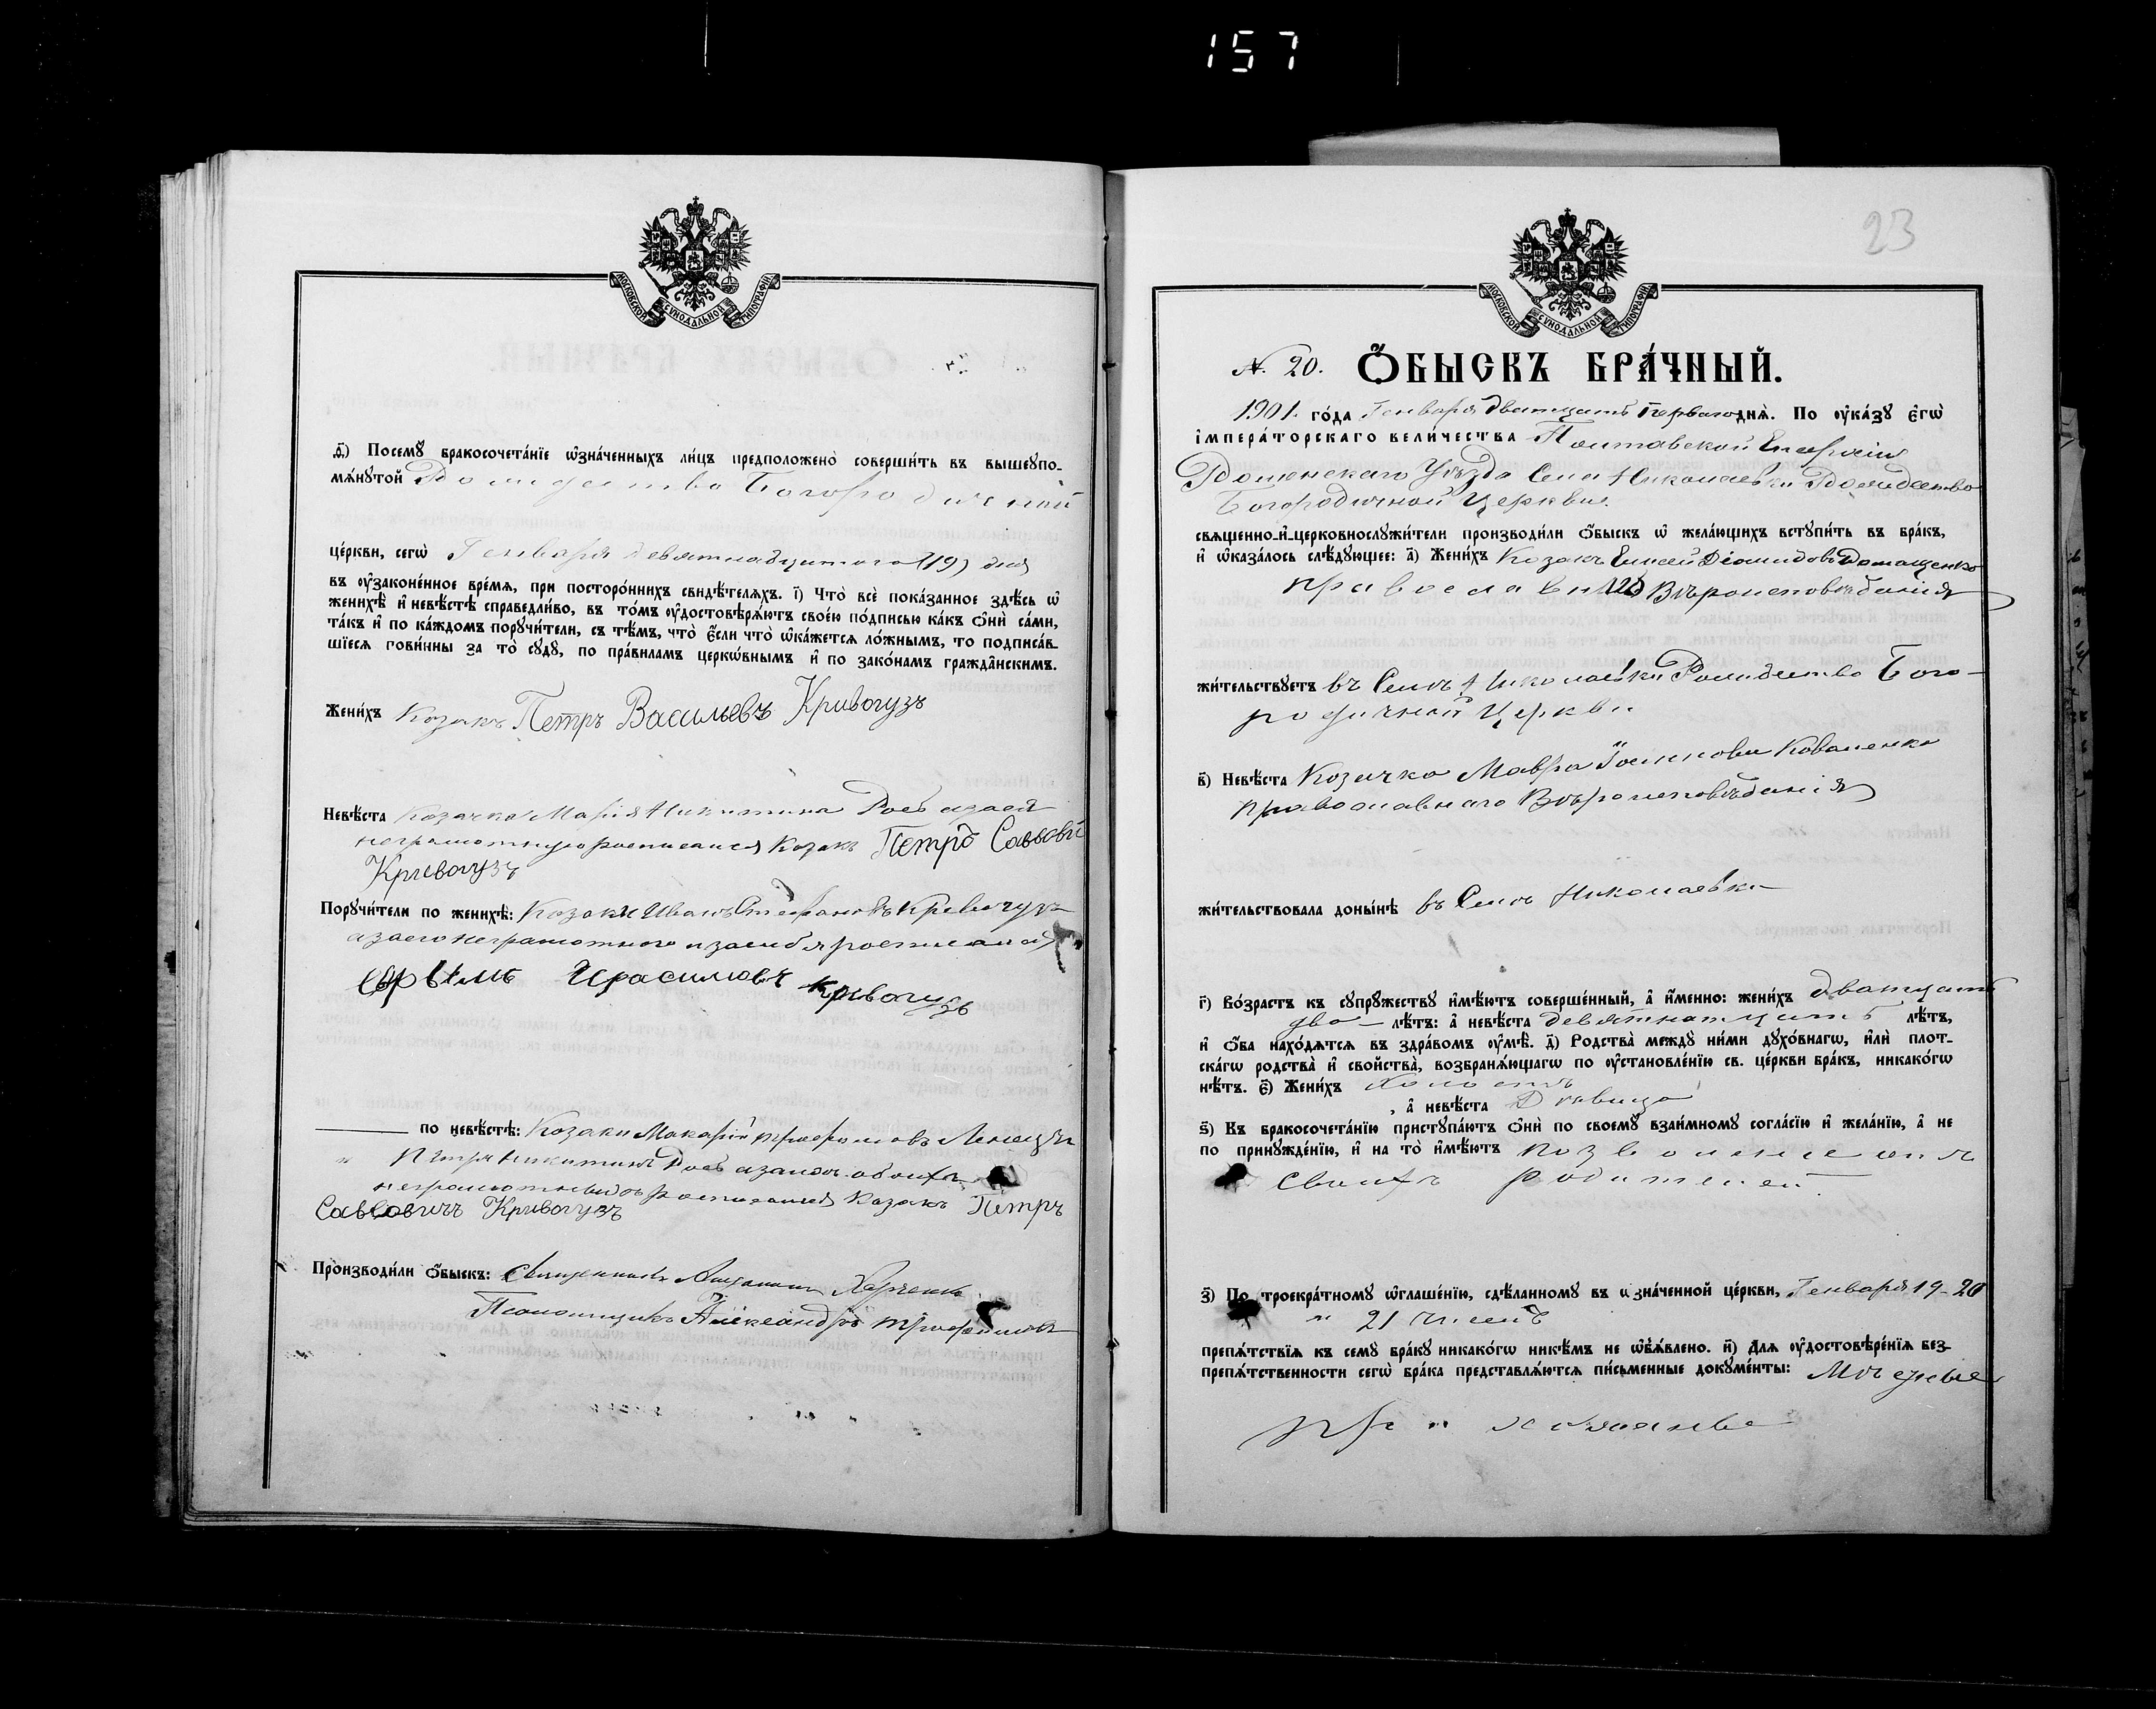 157
МОСКОВСКОЙ СѴНОДАЛЬНОЙ ТИПОГРАФІИ
ѳ҃) Посемꙋ̀ бракосочета́нїе ѡ҆зна́ченныхъ ли́цъ предположено̀ соверши́ть въ вышеꙋпо-
мѧ́нꙋтой Рождество Богородичной
це́ркви, сегѡ̀ Генваря девятнадцатого (19) дня
въ ᲂу҆зако́ненное вре́мѧ, при посторо́ннихъ свидѣ́телѧхъ. і҃) Что̀ всѐ пока́занное здѣ́сь ѡ҆
женихѣ̀ и҆ невѣ́стѣ справедли́во, въ то́мъ ᲂу҆достовѣрѧ́ютъ свое́ю по́дписью ка́къ ѻ҆нѝ са́ми,
та́къ и҆ по ка́ждомъ порꙋчи́тели, съ тѣ́мъ, что̀ є҆́сли что̀ ѡ҆ка́жетсѧ ло́жнымъ, то подписа́в-
шїесѧ пови́нны за то̀ сꙋдꙋ̀, по пра́виламъ церко́внымъ и҆ по зако́намъ гражда́нскимъ.
Жени́хъ Козакъ Петръ Васильевъ Кривогузъ
Невѣ́ста Козачка Марія Никитина
неграмотную росписался Козакъ Петръ Савовичъ
Кривогузъ
Порꙋчи́тели по женихѣ̀: Козаки Иванъ Стефановъ Кривогузъ
а за его неграмотного и за себя росписался
Ефимъ Герасимовъ Кривогузъ
по невѣ́стѣ: Козаки Макарій Трофимовъ
и Петръ Никитинъ а за ихъ обоихъ
неграмотныхъ росписался Козакъ Петръ
Савовичъ Кривогузъ
Производи́ли ѻ҆́быскъ: Священникъ Харченко
Псаломщикъ Александръ Трофимовъ
23
МОСКОВСКОЙ СѴНОДАЛЬНОЙ ТИПОГРАФІИ
№. 20. Ѻ҆́БЫСКЪ БРА́ЧНЫЙ.
1901. го́да Генваря Двадцать Перваго днѧ̀. По ᲂу҆ка́зꙋ є҆гѡ̀
і҆мпера́торскаго вели́чества Полтавской Епархіи
Роменскаго Уѣзда Села Николаевки Рождество
Богородичной Церкви.
свѧщенно-и҆-церковнослꙋжи́тели производи́ли ѻ҆́быскъ ѡ҆ жела́ющихъ встꙋпи́ть въ бра́къ,
и҆ ѡ҆каза́лось слѣ́дꙋющее: а҃) Жени́хъ Козакъ Елисей Діомидовъ Домащенко
православнаго Вѣроисповѣданія
жи́тельствꙋетъ въ Селѣ Николаевки Рождество Бого-
родичной Церкви
в҃) Невѣ́ста Козачка Мавра Іоаннова Коваленко
православнаго Вѣроисповѣданія
жи́тельствовала доны́нѣ въ Селѣ Николаевки
г҃) Во́зрастъ къ сꙋпрꙋ́жествꙋ и҆мѣ́ютъ соверше́нный, а҆ и҆́менно: жени́хъ двадцать
два лѣ́тъ: а҆ невѣ́ста девятнадцать лѣ́тъ,
и҆ ѻ҆́ба нахо́дѧтсѧ въ здра́вомъ ᲂу҆мѣ̀. д҃) Родства̀ междꙋ̀ ни́ми дꙋхо́внагѡ, и҆лѝ плот-
ска́гѡ родства̀ и҆ сво́йства̀, возбранѧ́ющагѡ по ᲂу҆становле́нїю св. це́ркви бра́къ, никако́гѡ
нѣ́тъ. є҃) Жени́хъ Холостъ
, а҆ невѣ́ста Дѣвица
ѕ҃) Къ бракосочета́нїю пристꙋпа́ютъ ѻ҆нѝ по своемꙋ̀ взаи́мномꙋ согла́сїю и҆ жела́нїю, а҆ не
по принꙋжде́нїю, и҆ на то̀ и҆мѣ́ютъ позволеніе отъ
своихъ родителей.
з҃) По троекра́тномꙋ ѡ҆глаше́нїю, сдѣ́ланномꙋ въ ѡ҆зна́ченной це́ркви, Генваря 19-20
и 21 числѣ
препѧ́тствїѧ къ семꙋ̀ бра́кꙋ никако́гѡ никѣ́мъ не ѡ҆б̾ѧ́влено. и҃) Длѧ ᲂу҆достовѣре́нїѧ без-
препѧ́тственности сегѡ̀ бра́ка представлѧ́ютсѧ пи́сьменные докꙋме́нты: